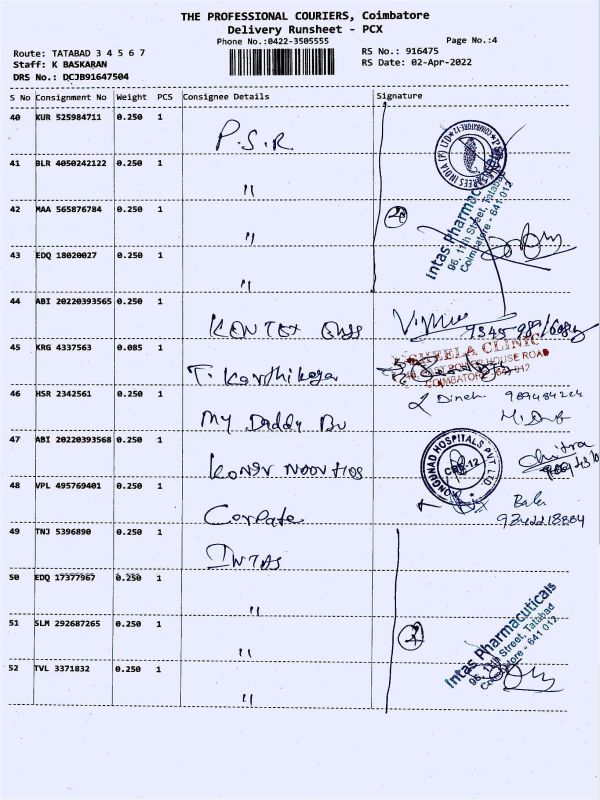 THE PROFESSIONAL COURIERS, Coimbatore
Delivery Runsheet - PCX
Phone No.:0422-3505555
Page No.:4
Route: TATABAD 3 4 5 6 7
RS No.: 916475
Staff: K BASKARAN
RS Date: 02-Apr-2022
DRS No.: DCJB91647504
S No Consignment No Weight PCS Consignee Details Signature
40 KUR 525984711 0.250 1 P.S.R
41 BLR 4050242122 0.250 1 "
42 MAA 565876784 0.250 1 "
43 EDQ 18020027 0.250 1 "
Intas Pharmaceuticals
96, 11th Street, Tatabad
Coimbatore - 641 012
44 ABI 20220393565 0.250 1
45 KRG 4337563 0.085 1 T. Karthikeya
SHEELA CLINIC
HOUSE ROAD
COIMBATORE
46 HSR 2342561 0.250 1 My Daddy
Dinesh
47 ABI 20220393568 0.250 1
KONGUNAD HOSPITALS PVT LTD
CBE-12
Chitra
48 VPL 495769401 0.250 1
Bala
9342218884
49 TNJ 5396890 0.250 1 INTAS
50 EDQ 17377967 0.250 1 "
51 SLM 292687265 0.250 1 "
52 TVL 3371832 0.250 1 "
Intas Pharmacuticals
96, 11th Street, Tatabad
Coimbatore - 641 012